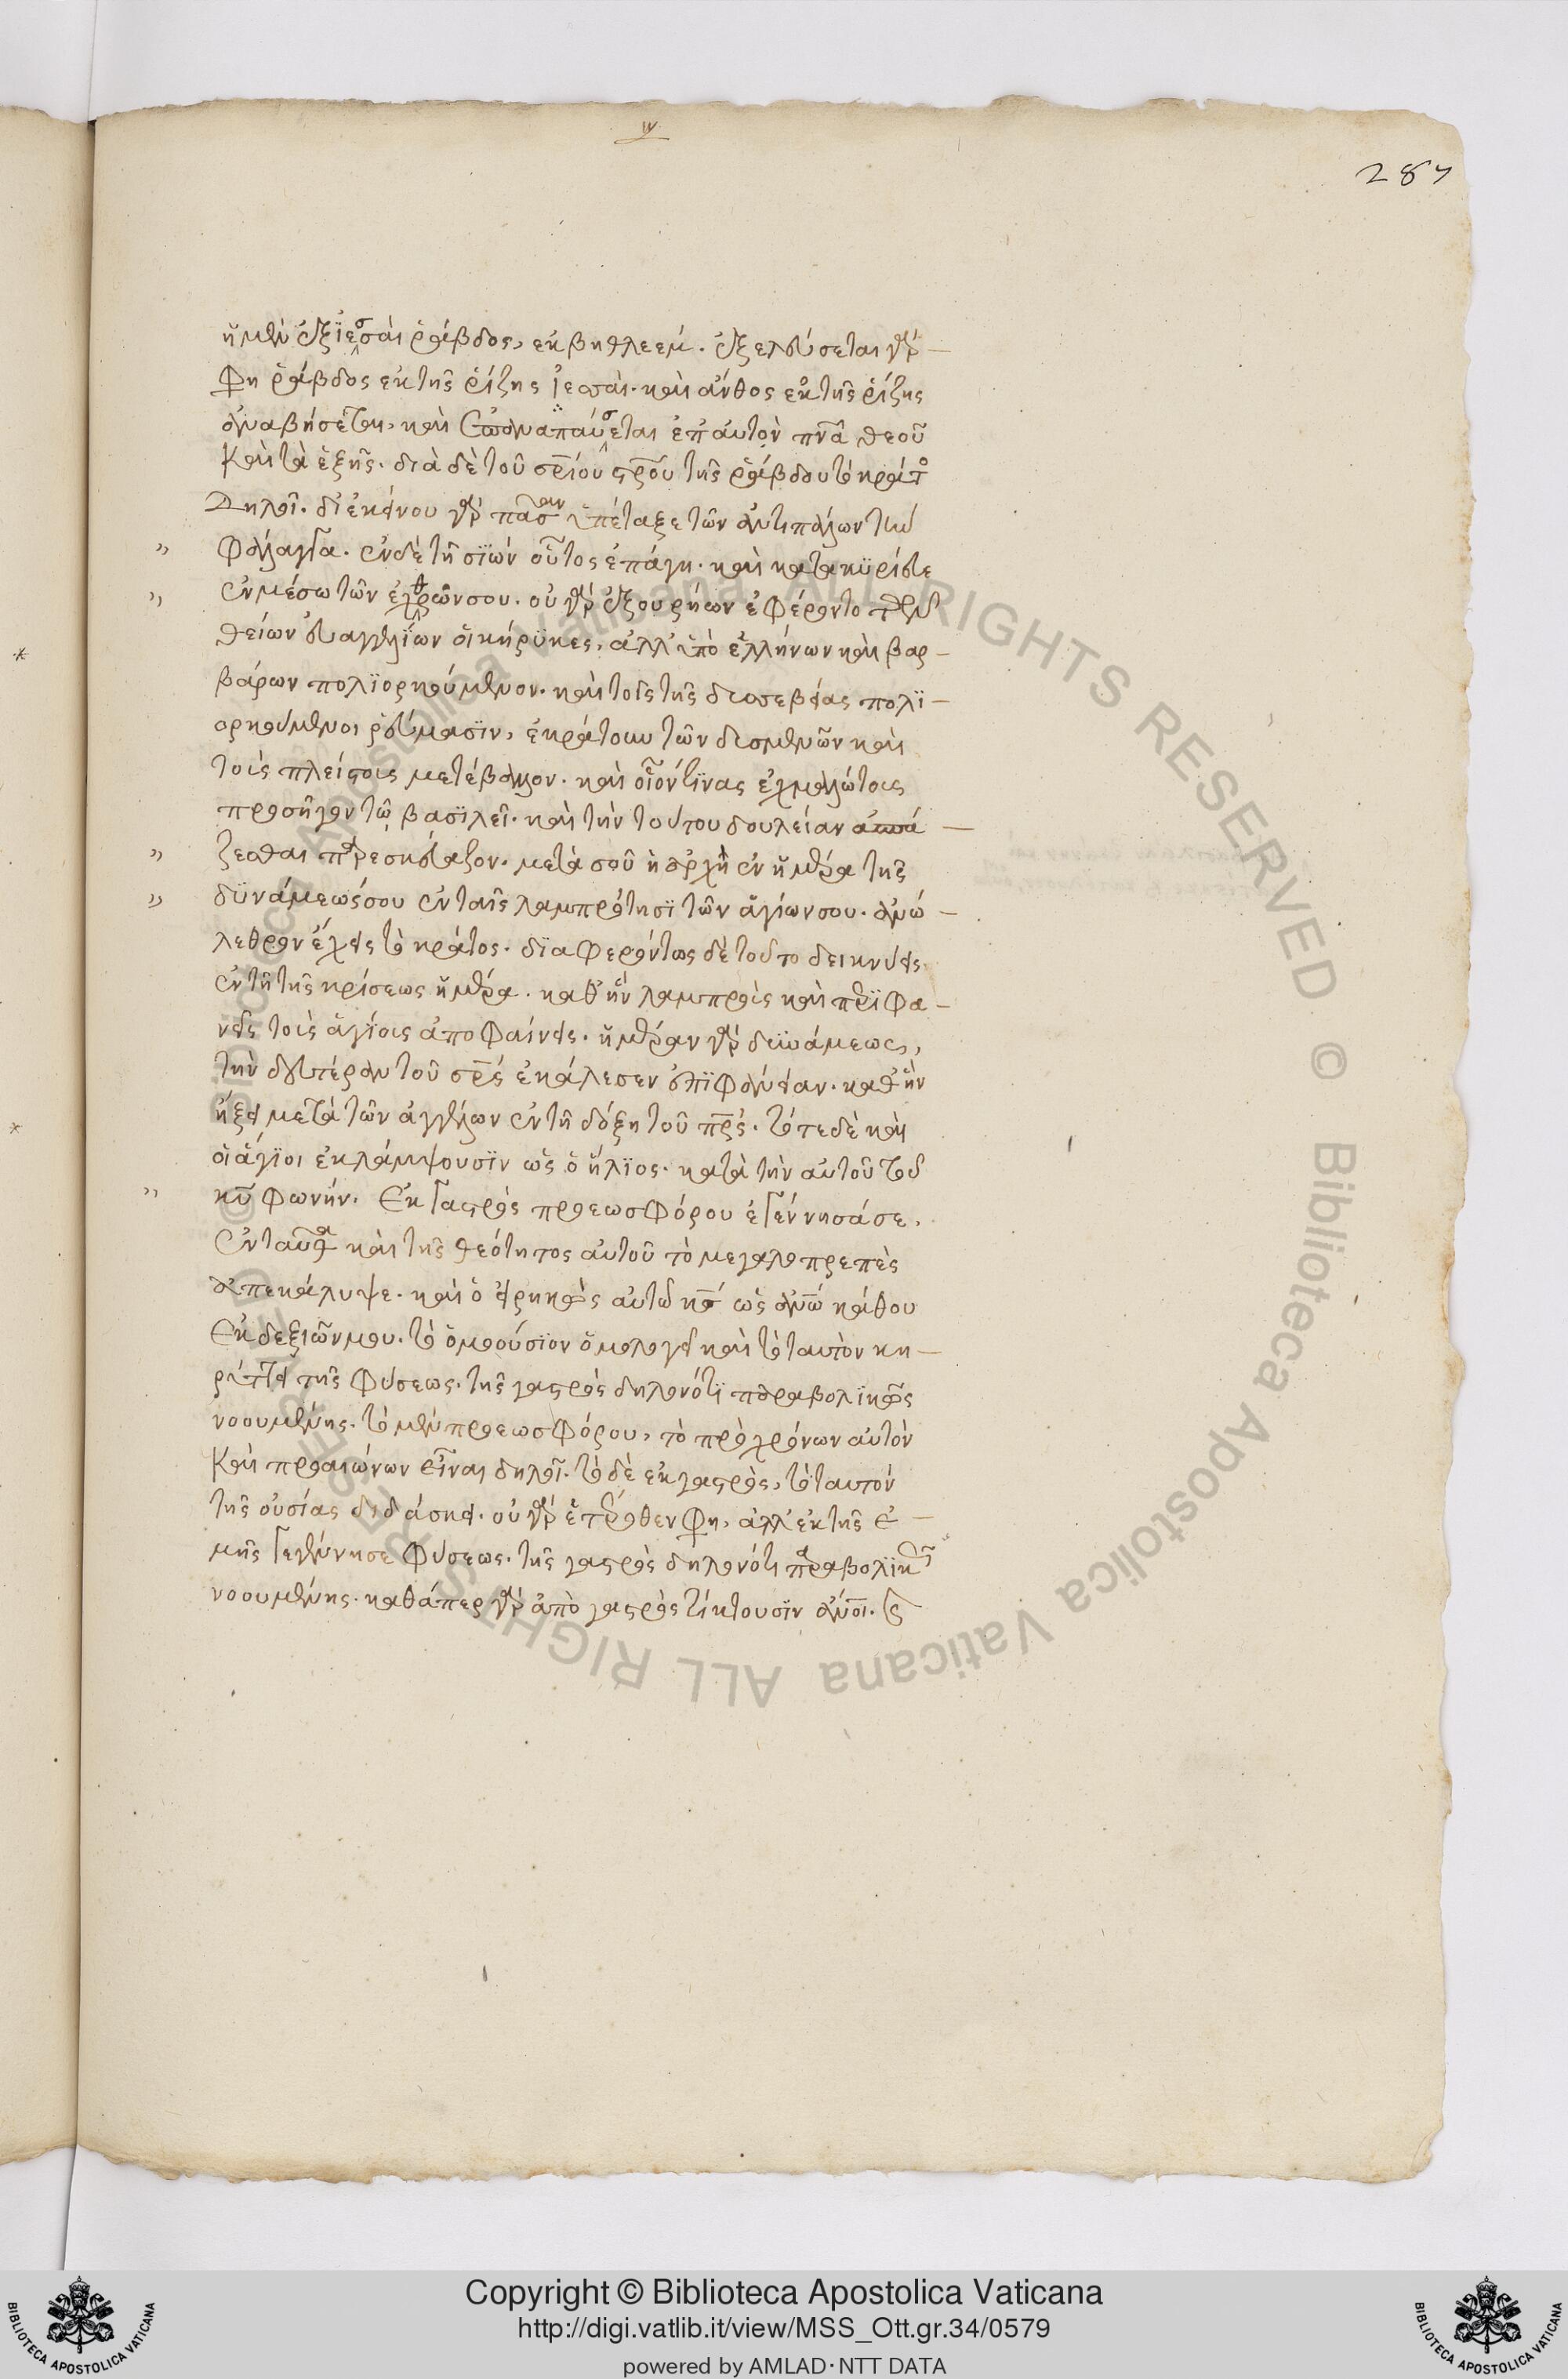 287
ἡ μὲν ἐξ ἰεσσαὶ ῥάβδος, ἐκ βηθλεέμ. ἐξελεύσεται γάρ
φη ῥάβδος ἐκ τῆς ῥίζης ἰεσσαί. καὶ ἄνθος ἐκ τῆς ῥίζης
ἀναβήσεται, καὶ ἐπαναπαύσεται ἐπ αυτὸν πνᾶ θεοῦ
καὶ τὰ ἑξῆς. διὰ δὲ τοῦ σρίου στροῦ τῆς ῥάβδου τὸ κράτο
δηλοῖ. δι ἐκείνου γάρ πᾶσαν ὑπέταξε τῶν ἀντιπάλων τὴν
φάλαγγα. ἐν δὲ τῆ σϊὼν οὗτος ἐπάγη. καὶ κατακϋρίευε
ἐν μέσω τῶν ἐχθρῶν σου. οὐ γάρ ἐξουρήων ἐφέροντο τῶν
θείων εὐαγγελίων οἱ κήρϋκες, ἀλλ ὑπὸ ἑλλήνων καὶ βαρ-
βάρων πολϊορκούμενον. καὶ τοῖς τῆς δυσσεβείας πολϊ-
ορκούμενοι ῥεύμασϊν, ἐκράτουν τῶν δυσμενῶν καὶ
τοὺς πλείστους μετέβαλλον. καὶ οἷόν τϊνας αἰχμαλώτους
προσῆγον τῶ βασϊλεῖ. καὶ τὴν τούτου δουλείαν ἀσπά-
ζεσθαι παρεσκεύαζον. μετὰ σοῦ ἡ ἀρχὴ ἐν ἡμέρα τῆς
δϋνάμεώς σου ἐν ταῖς λαμπρότησϊ τῶν ἁγίων σου. ἀνώ-
λεθρον ἔχεις τὸ κράτος. δϊαφερόντως δὲ τοῦτο δεικνύεις
ἐν τῆ τῆς κρίσεως ἡμέρα. καθ ἣν λαμπροὺς καὶ περϊφα-
νεῖς τοὺς ἁγίους ἀποφαίνεις. ἡμέραν γάρ δυνάμεως,
τὴν δευτέραν τοῦ σρς ἐκάλεσεν ἐπϊφάνειαν. καθ ἣν
ἥξει μετὰ τῶν ἀγγέλων ἐν τῆ δόξη τοῦ πρς. τότε δὲ καὶ
οἱ ἅγϊοι ἐκλάμψουσϊν ὡς ὁ ἥλϊος. κατὰ τὴν αὐτοῦ τοῦ
κυ φωνήν. ἐκ γαστρὸς πρὸ ἑωσφόρου ἐγέννησά σε.
ἐνταῦθα καὶ τῆς θεότητος αὐτοῦ τὸ μεγαλοπρεπὲς
ἀπεκάλυψε. καὶ ὁ εἰρηκὼς αὐτῶ κς ὡς ἀνω κάθου
ἐκ δεξιῶν μου. τὸ ὁμοούσϊον ὁμολογεῖ καὶ τὸ ταυτὸν κη-
ρύττει τῆς φύσεως. τῆς γαστρὸς δηλονότϊ παραβολϊκῶς
νοουμένης. τὸ μὲν πρὸ ἑωσφόρου, τὸ πρὸ χρόνων αὐτὸν
καὶ προαιώνων εἶναι δηλοῖ. τὸ δὲ ἐκ γαστρὸς, τὸ ταυτὸν
τῆς οὐσίας διδάσκει. οὐ γάρ ἑτέρωθεν φη, ἀλλ ἐκ τῆς ἐ-
μῆς γεγέννησε φύσεως. τῆς γαστρὸς δηλονότι παραβολϊκῶς
νοουμένης. καθάπερ γάρ ἀπὸ γαστρὸς τίκτουσϊν ἄνοι. καὶ
Copyright © Biblioteca Apostolica Vaticana
http://digi.vatlib.it/view/MSS_Ott.gr.34/0579
powered by AMLAD·NTT DATA